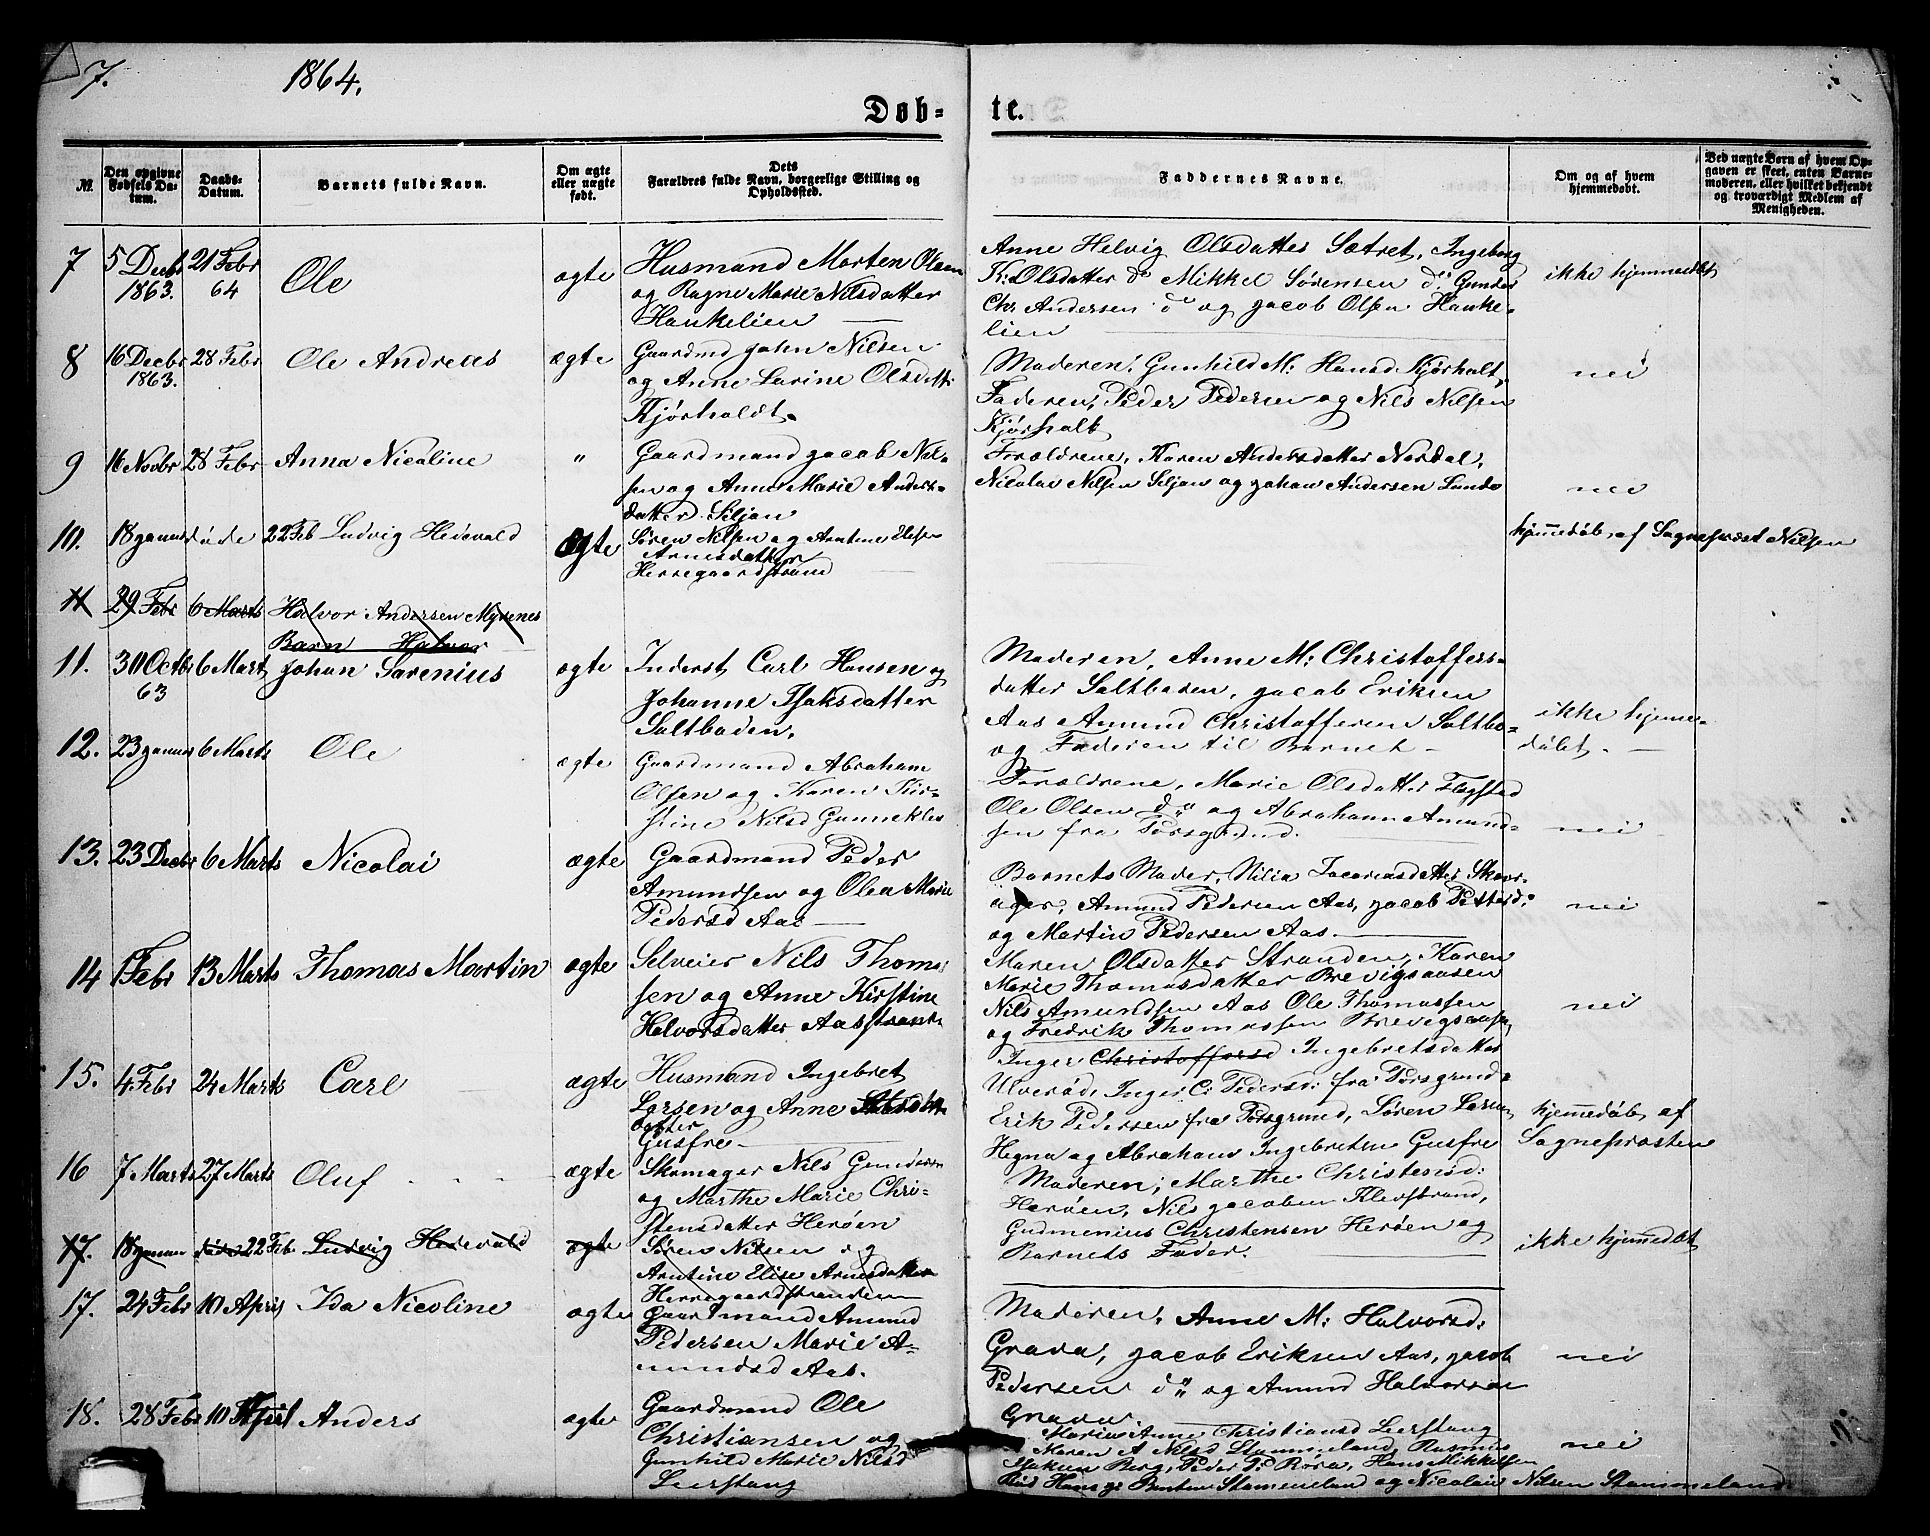 7.
1864.
Døb-
te.
№.
Den opgivne Fødsels Datum.
Daabs-Datum.
Barnets fulde Navn.
Om ægte eller uægte født.
Dets Forældres fulde Navn, borgerlige Stilling og Opholdssted.
Faddernes Navne.
Om og af hvem hjemmedøbt.
Ved uægte Børn af hvem Opgaven er skeet, enten Barnemoderen, eller hvilket bekjendt og troværdigt Medlem af Menigheden.
7 5 Decbr 1863. 21 Febr 64 Ole ægte
Husmand Morten Olsen
og Ragne Marie Nilsdatter
Haukelien
Anne Helvig Olsdatter Sætret, Ingeborg
K: Olsdatter do Mikkel Sørensen do Gunder
Chr Andersen do og Jacob Olsen Hauke-
lien
ikke hjemmedøbt
8 16 Decbr 1863. 28 Febr Ole Andreas ægte
Gaardmd John Nilsen
og Anne Larine Olsdatt:
Kjørholdt.
Moderen, Gunhild M: Hansd Kjørholt,
Faderen, Peder Pedersen og Nils Nilsen
Kjørholt
nei
9 16 Novbr 28 Febr Anna Nicoline "
Gaardmand Jacob Nil-
sen og Anne Marie Anders-
datter Siljan
Forældrene, Karen Andersdatter Nordal,
Nicolai Nilsen Siljan og Johan Andersen Lunde
nei
10. 18 Januar døde 22 Feb Ludvig Hedevald ægte
Søren Nilsen og Arntine Elisen
Arnesdatter
Herregaardstrand
hjemmedøb. af Sognepræst Nilsen
11 29 Febr 6 Marts Halvor Andersen Myrenes
Barn Halvor
11. 30 Octb 63 6 Mart Johan Sørenius ægte
Inderst Carl Hansen og
Johanne Isaksdatter
Saltboden.
Moderen, Anne M: Christoffers-
datter Saltboden, Jacob Eriksen
Aas Amund Christoffersen Saltbo-
og Faderen til Barnet
ikke hjemme-
døbt.
12. 23 Januar 6 Marts Ole ægte
Gaardmand Abraham
Olsen og Karen Kir-
stine Nilsd Gunnekles
Forældrene, Marie Olsdatter Flogstad
Ole Olsen do og Abraham Amund-
sen fra Porsgrund.
nei
13. 23 Decbr 6 Marts Nicolai ægte
Gaardmand Peder
Amundsen og Olea Marie
Pedersd Aas
Barnets Moder, Nilia Zacariasdatter Skavr-
ager, Amund Pedersen Aas, Jacob Pettersd:
og Martin Pedersen Aas.
nei
14 1 Febr 13 Marts Thomas Martin ægte
Selveier Nils Thomas-
sen og Anne Kirstine
Halvorsdatter Aasstrand-
Maren Olsdatter Stranden, Karen
Marie Thomasdatter Brevigsaasen
Nils Amundsen Aas Ole Thomassen
og Fredrik Thomassen Brevigsaasen
nei
15. 4 Febr 24 Marts Carl ægte
Husmand Ingebret
Larsen og Anne
Gusfre
Inger Christoffersd Ingebretsdatter
Ulverød, Inger C: Pedersd: fra Porsgrund-
Erik Pedersen fra Porsgrund, Søren Larsen
Hegna og Abraham Ingebretsen Gusfre
hjemmedøb. af
Sognepræsten
16 7 Marts 27 Marts Oluf ægte
Skomager Nils Gundersen
og Marthe Marie Chri-
stensdatter Herøen
Moderen, Marthe Christensd:
Herøen, Nils Jacobsen Klevstrand,
Gudmenius Christensen Herøen og
Barnets Fader.
ikke hjemmedøbt
17. 18 Januar døde 22 Feb Ludvig Hedevald ægte
Søren Nilsen og
Arntine Elise Arnesdatter
Herregaardstranden
17. 24 Febr 10 April Ida Nicoline ægte
Gaardmand Amund
Pedersen Marie A-
mundsd Aas.
Moderen, Anne M: Halvorsd:
Grava, Jacob Eriksen Aas, Jacob
Pedersen do og Amund Halvorsen
Grava.
nei
18. 28 Febr 10 April Anders ægte
Gaardmand Ole
Christiansen og
Gunhild Marie Nilsd
Leerstang
Maria Anne Christiansd Leerstang
Maren A Nilsd Stammeland, Rasmus
Isaksen Berg, Peder P: Røra, Hans Mikkelsen
Hans Bentsen Stammeland og Nicolai Nilsen Stammeland.
nei